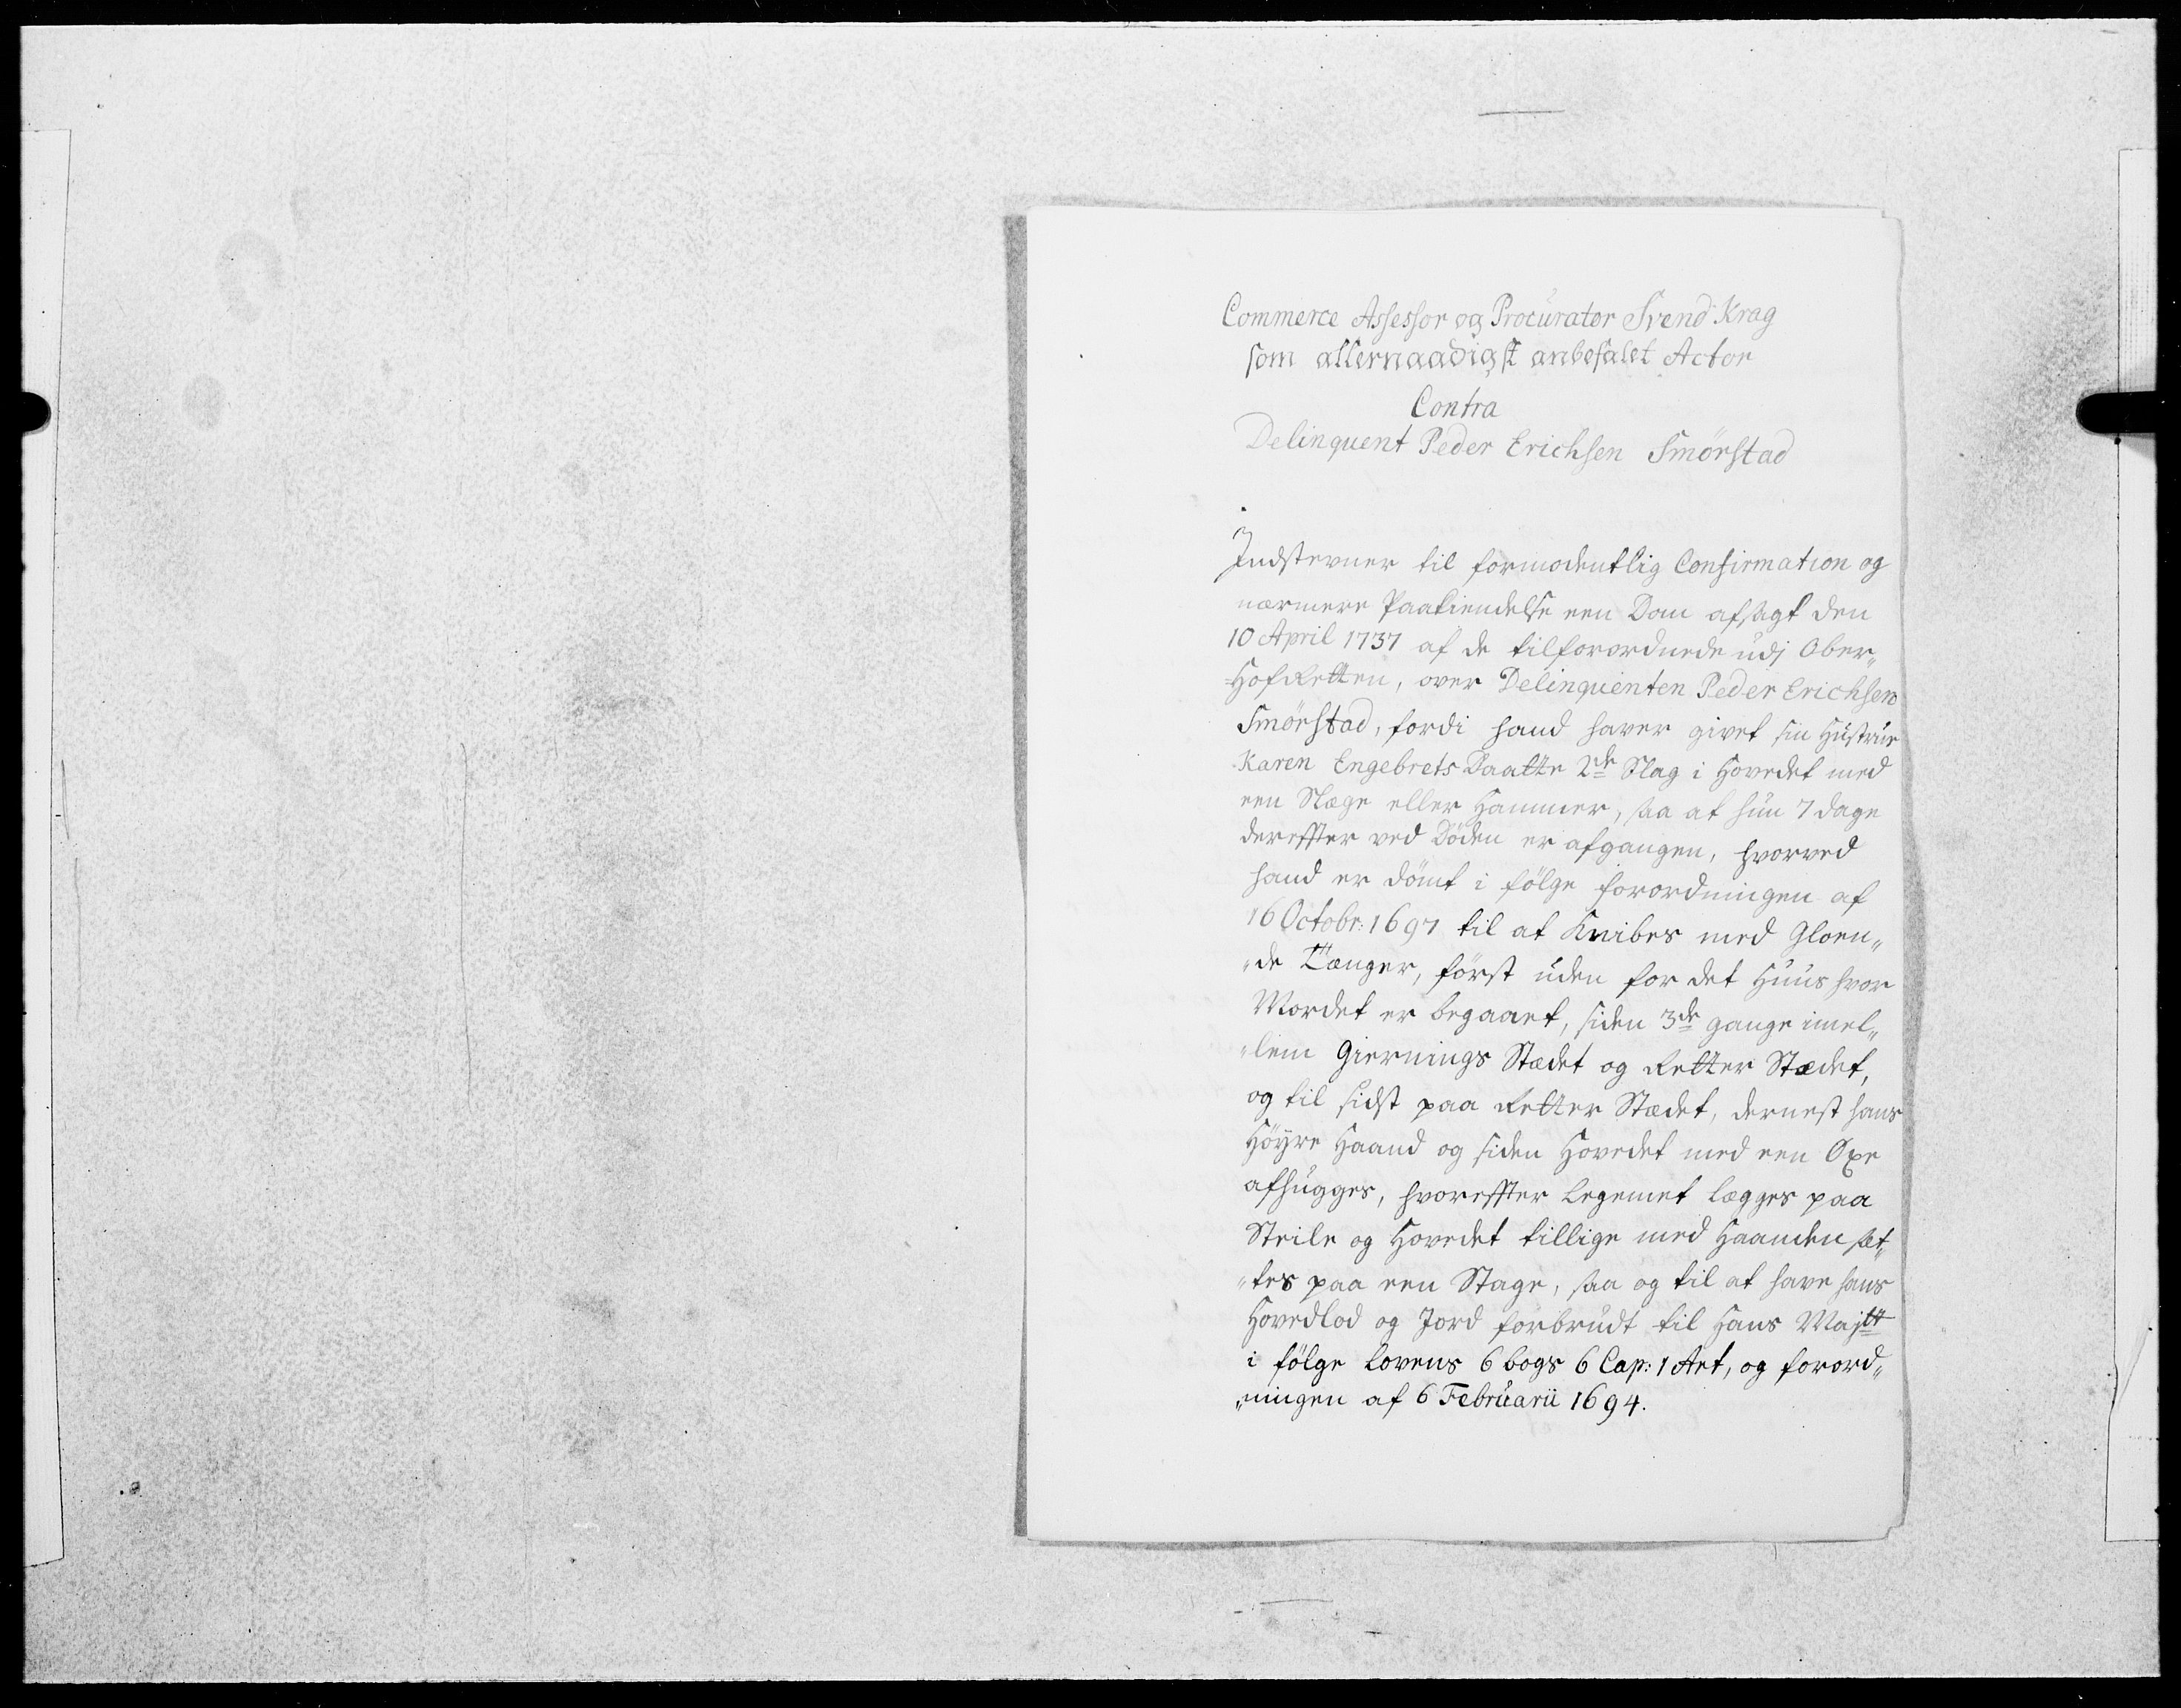 Commerce Assessor og Procurator Svend Krag
som allernaadigst anbefalet Actor
Contra
Delinquent Peder Erichsen Smörstad
Indstevner til formodentlig Confirmation og
nærmere Paakiendelse een Dom afsagt den
10 April 1737 af de tilforordnede udj Ober„
Hof Retten, over Delinquenten Peder Erichsen
Smörstad, fordi hand haver givet sin Hustrue
Karen Engebrets Daatte 2de Slag i Hovedet med
een Slæge eller Hammer, saa at hun 7 dage
dereffter ved Döden er afgangen, hvorved
hand er dömt i fölge forordningen af
16 Octobr: 1697 til at Knibes med Gloen„
„de Tænger, först uden for det Huus hvor
Mordet er begaaet, siden 3de gange imel„
„lem Giernings Stædet og Retter Stædet,
og til sidst paa Retter Stædet, dernest hans
Höyre Haand og siden Hovedet med een Öxe
afhugges, hvoreffter Legemet lægges paa
Steile og Hovedet tillige med Haanden sæt„
„tes paa een Stage, saa og til at have hans
Hovedlod og Jord forbrudt til Hans Majtt
i fölge Lovens 6 bogs 6 Cap: 1 Art, og forord„
„ningen af 6 Februarii 1694.